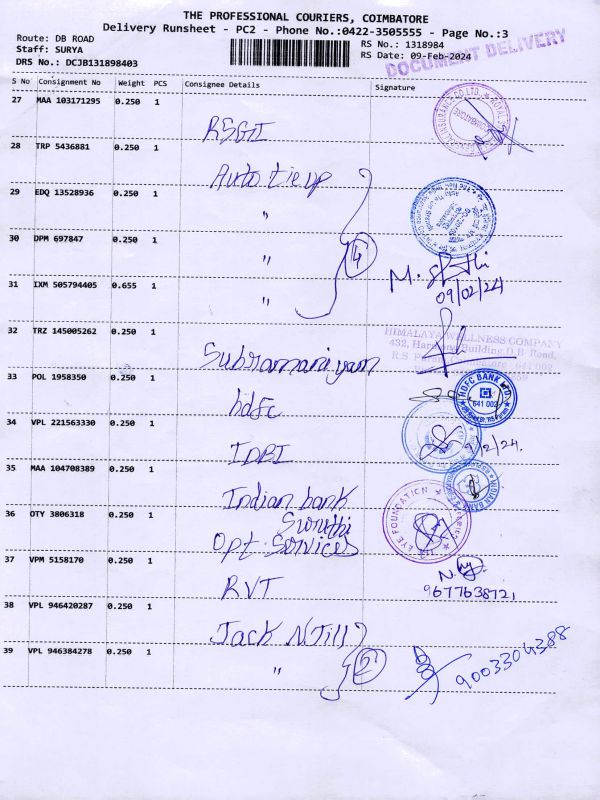 THE PROFESSIONAL COURIERS, COIMBATORE
Delivery Runsheet - PC2 - Phone No.:0422-3505555 - Page No.:3
Route: DB ROAD
RS No.: 1318984
Staff: SURYA
RS Date: 09-Feb-2024
DRS No.: DCJB131898403
DOCUMENT DELIVERY
S No Consignment No Weight PCS Consignee Details Signature
27 MAA 103171295 0.250 1
RSGI
28 TRP 5436881 0.250 1
Auto tieup
29 EDQ 13528936 0.250 1
"
30 DPM 697847 0.250 1
" 4
31 IXM 505794405 0.655 1
"
09/02/24
32 TRZ 145005262 0.250 1
Subramaniyam
HIMALAYA WELLNESS COMPANY
33 POL 1958350 0.250 1
hdfc
HDFC BANK LTD
641 002
34 VPL 221563330 0.250 1
IDBI
9/2/24.
35 MAA 104708389 0.250 1
Indian bank
INDIAN BANK
36 OTY 3806318 0.250 1
Sruthi
Opt Services
EYE FOUNDATION
37 VPM 5158170 0.250 1
RVT
9677638721
38 VPL 946420287 0.250 1
Jack N Jill
39 VPL 946384278 0.250 1
" 2
9003304388